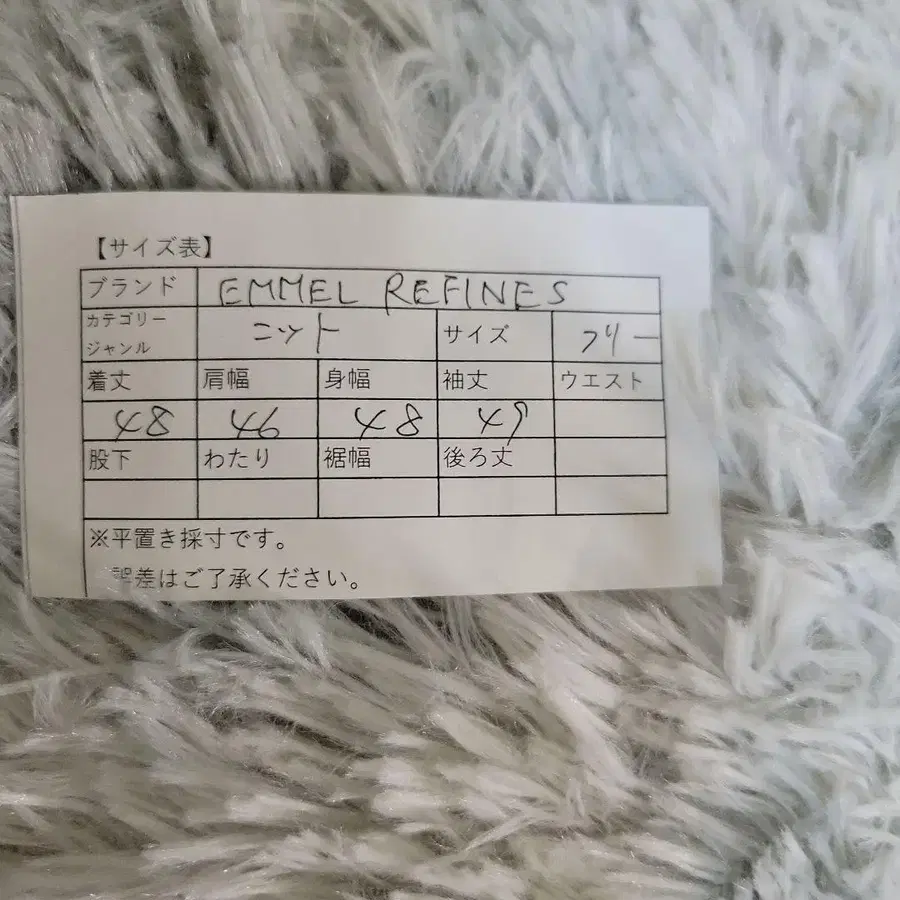 【サイズ表】
ブランド EMMEL REFINES
カテゴリー
ジャンル ニット サイズ フリー
着丈 肩幅 身幅 袖丈 ウエスト
48 46 48 49
股下 わたり 裾幅 後ろ丈
※平置き採寸です。
誤差はご了承ください。